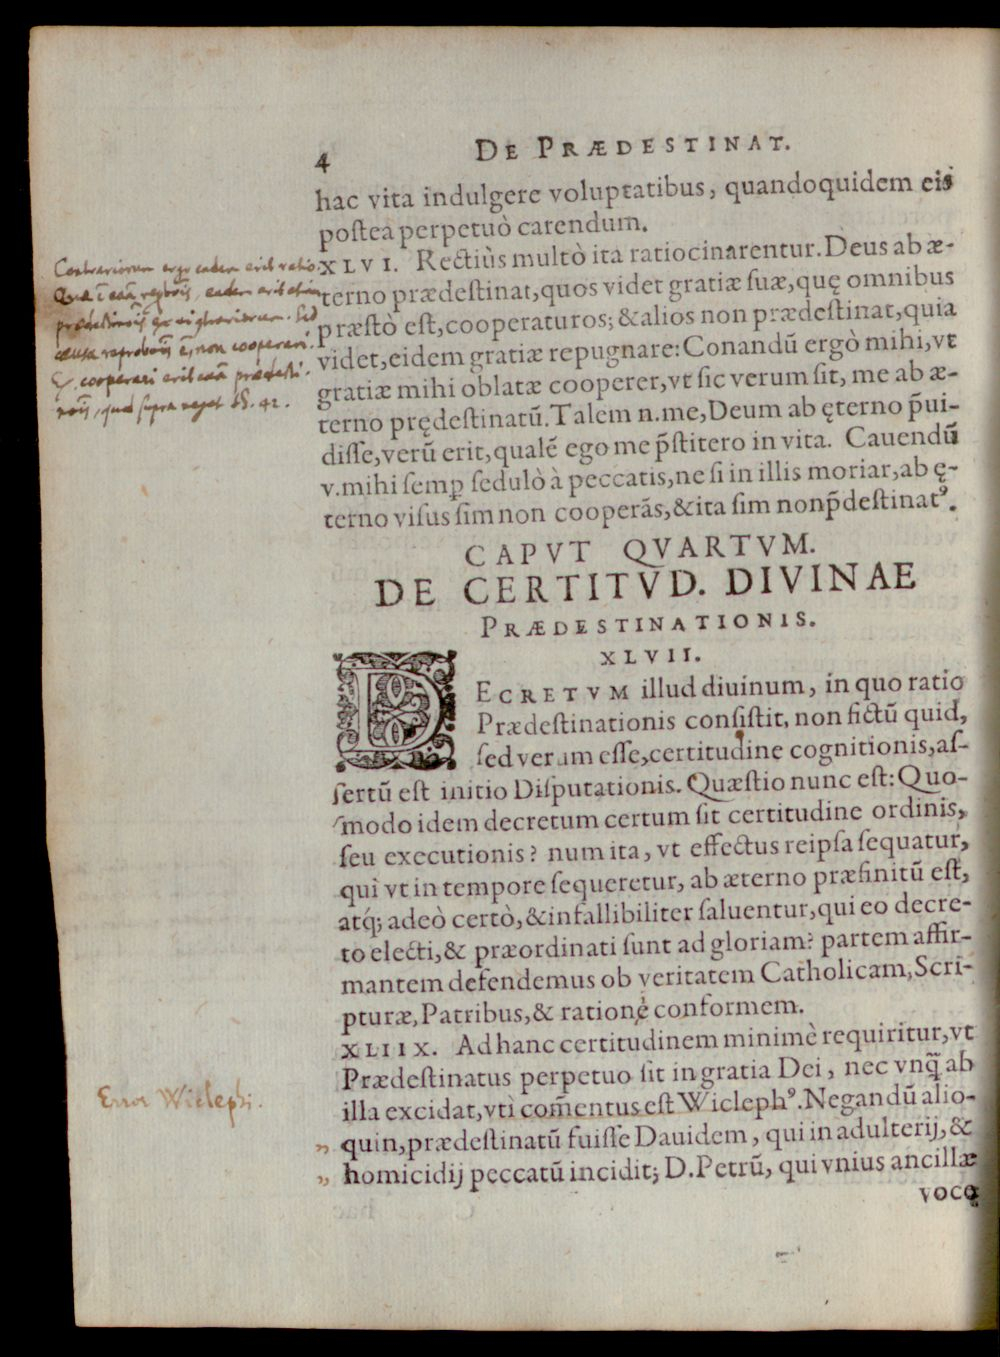 4 DE PRÆDESTINAT.
hac vita indulgere voluptatibus, quandoquidem eis
poſtea perpetuò carendum.
XLVI. Rectiùs multò ita ratiocinarentur. Deus ab æ-
terno prædeſtinat, quos videt gratiæ ſuæ, quę omnibus
præſtò eſt, cooperaturos; & alios non prædeſtinat, quia
videt, eidem gratiæ repugnare: Conandū ergò mihi, vt
gratiæ mihi oblatæ cooperer, vt ſic verum ſit, me ab æ-
terno prędeſtinatū. Talem n. me, Deum ab ęterno p̄ui-
diſſe, verū erit, qualē ego me p̄ſtitero in vita. Cauendū
v. mihi ſemꝑ ſedulò à peccatis, ne ſi in illis moriar, ab ę-
terno viſus ſim non cooperās, & ita ſim non p̄deſtinatꝰ.
Contrariorum ergo eadem erit ratio.
cauſa non cooperari.
cooperari erit
ſupra negat 42.
CAPVT QVARTVM.
DE CERTITVD. DIVINAE
PRÆDESTINATIONIS.
XLVII.
DECRETVM illud diuinum, in quo ratio
Prædeſtinationis conſiſtit, non fictū quid,
ſed verum eſſe, certitudine cognitionis, aſ-
ſertū eſt initio Diſputationis. Quæſtio nunc eſt: Quo-
modo idem decretum certum ſit certitudine ordinis,
ſeu executionis? num ita, vt effectus reipſa ſequatur,
qui vt in tempore ſequeretur, ab æterno præfinitū eſt,
atq́; adeò certò, & infallibiliter ſaluentur, qui eo decre-
to electi, & præordinati ſunt ad gloriam? partem affir-
mantem defendemus ob veritatem Catholicam, Scri-
pturæ, Patribus, & rationé conformem.
XLIIX. Ad hanc certitudinem minimè requiritur, vt
Prædeſtinatus perpetuo ſit in gratia Dei, nec vnq̃ ab
Error Wiclephi.
illa excidat, vti com̄entus eſt Wiclephꝰ. Negandū alio-
„ quin, prædeſtinatū fuiſſe Dauidem, qui in adulterij, &
„ homicidij peccatū incidit; D. Petrū, qui vnius ancillæ
voce